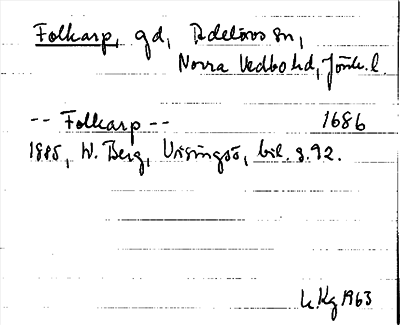 Folkarp, gd, Adelövs sn,
Norra Vedbo hd, Jönk. l.
-- Folkarp -- 1686
1885, W. Berg, Visingsö, bil. s. 92.
L. Kg 1963